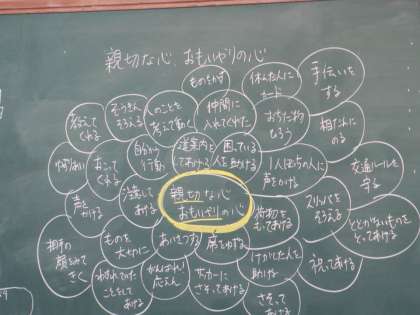 親切な心、おもいやりの心
ものをかす
休んだ人に
カード
手伝いを
する
教えて
くれる
ぞうきん
そろえる
のことを
考えて動く
仲間に
入れてくれた
おちた物
ひろう
相だんに
のる
おこって
くれる
自分から
行動
道案内を
してあげる
困っている
人を助ける
1人ぼっちの人に
声をかける
交通ルールを
守る
声を
かける
注意して
あげる
親切な心
おもいやりの心
荷物を
もってあげる
スリッパを
そろえる
とどかないものを
とってあげる
相手の
顔をみて
きく
ものを
大切に
あいさつ
席をゆずる
けがした人を
助ける
祝ってあげる
ことをして
あげる
がんばれ!
応えん
サッカーに
さそってあげる
さそって
あげる